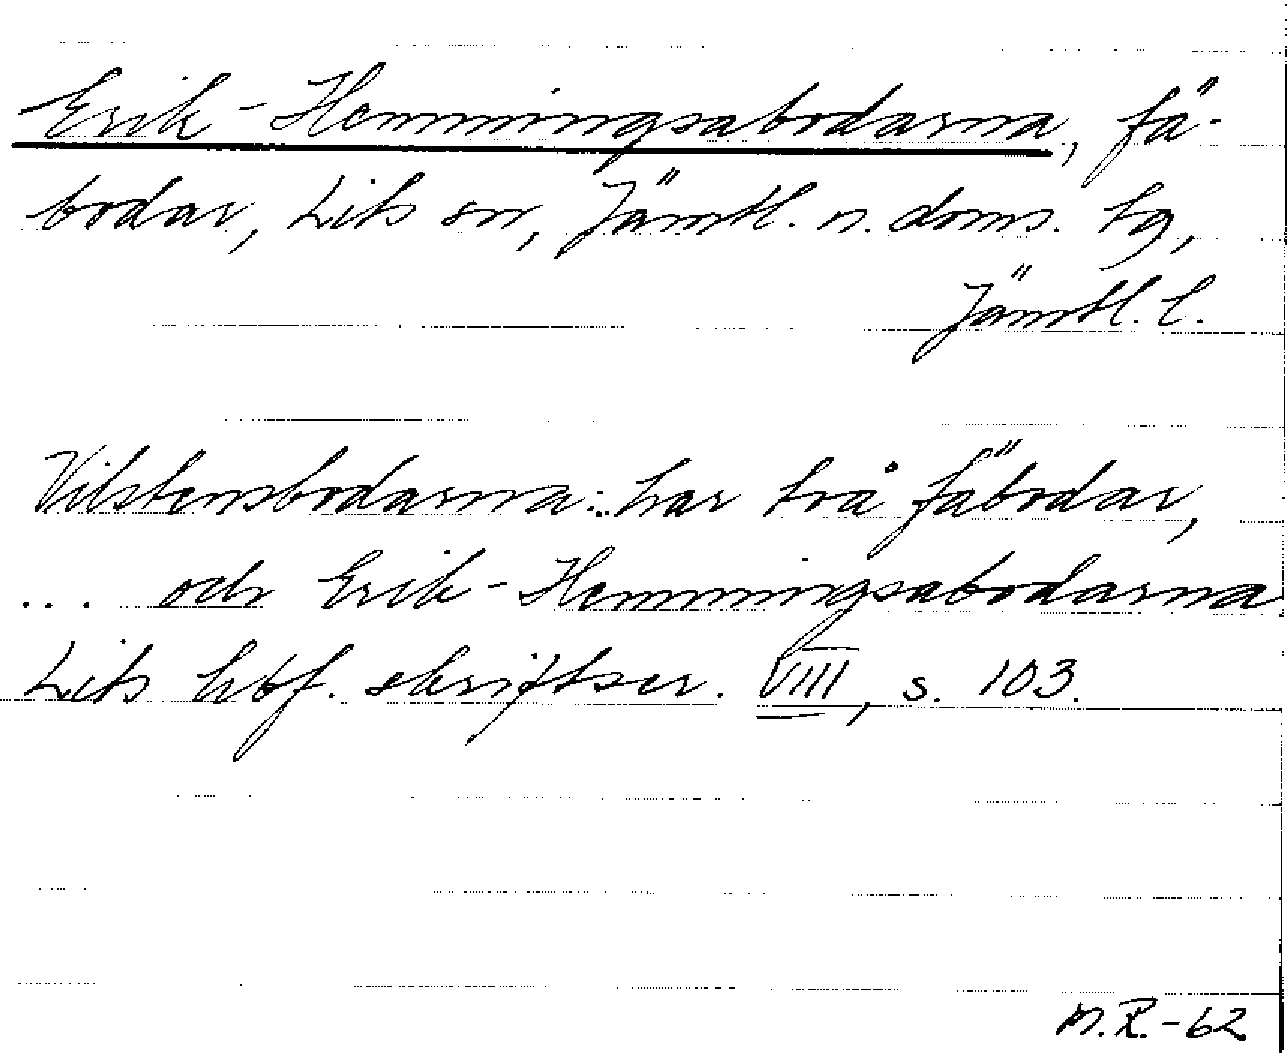 Erik-Hemmingsabodarna, fä-
bodar, Lits sn, Jämtl. n. doms. tg,
Jämtl. l.
Vilstensbodarna: har två fäbodar,
... och Erik-Hemmingsabodarna
Lits hbf. skriftser. VIII, s. 103.
M.R.-62